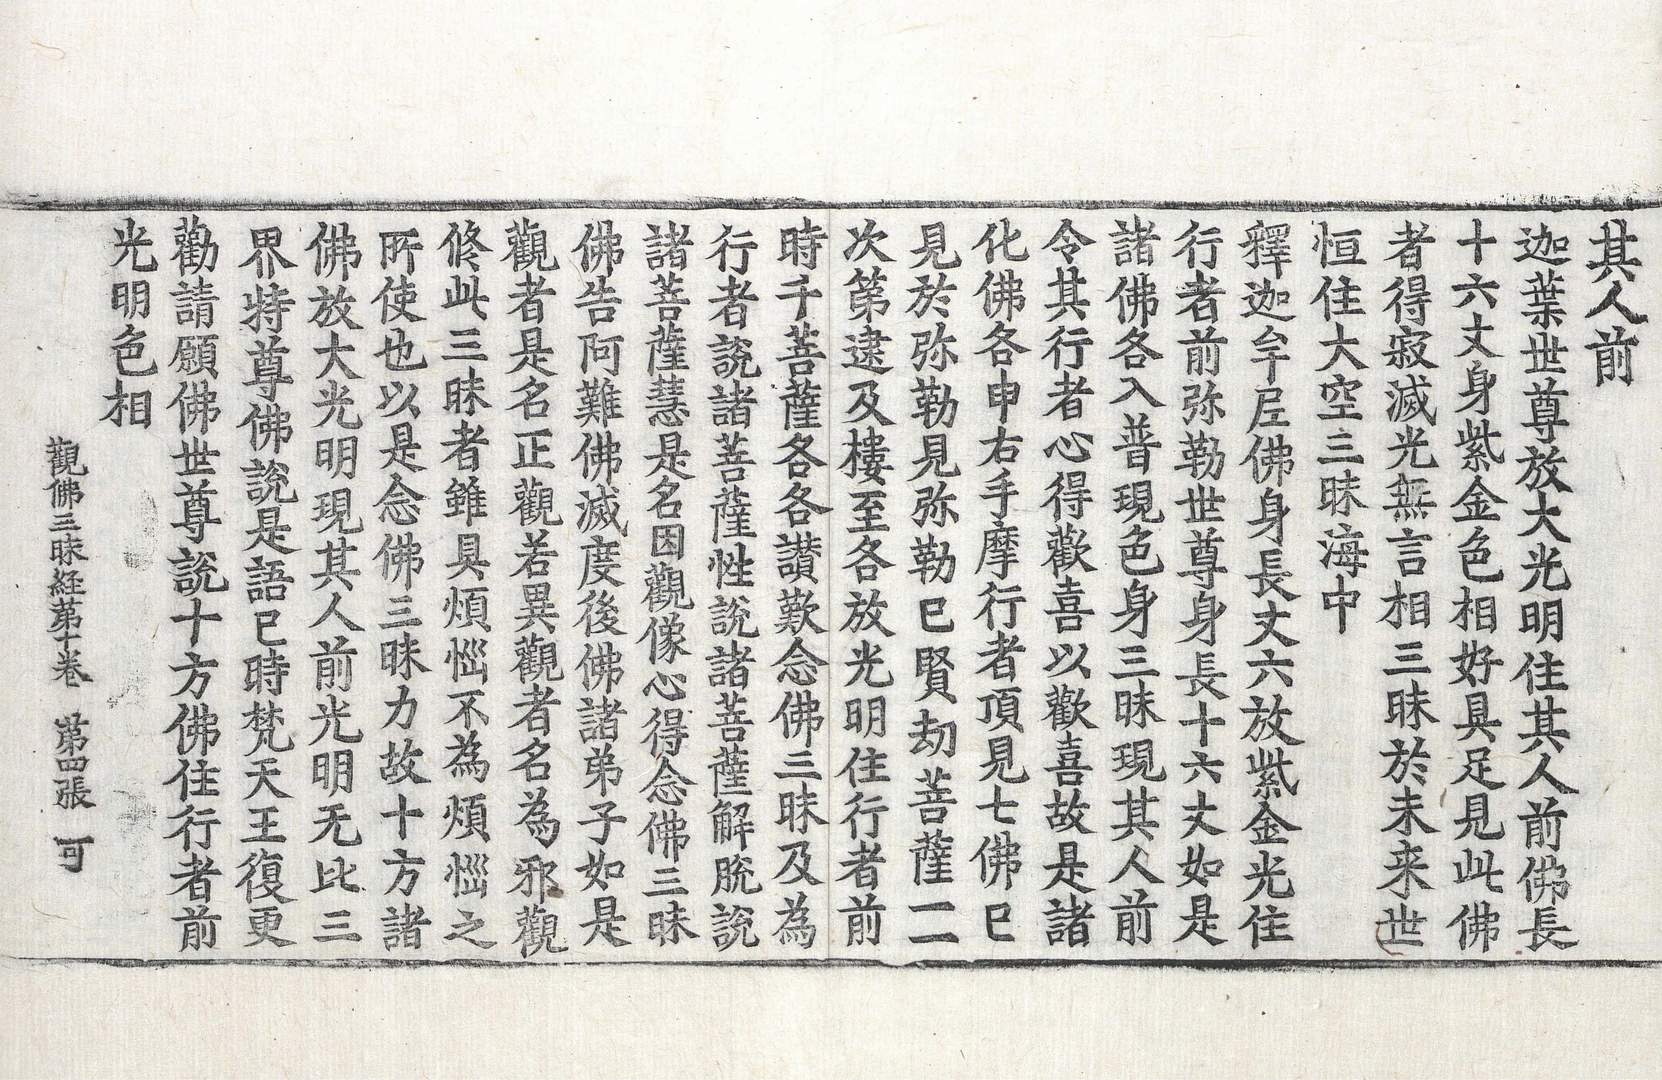 其人前
迦葉世尊放大光明住其人前佛長
十六丈身紫金色相好具足見此佛
者得寂滅光無言相三昧於未来世
恒住大空三昧海中
釋迦牟尼佛身長丈六放紫金光住
行者前弥勒世尊身長十六丈如是
諸佛各入普現色身三昧現其人前
令其行者心得歡喜以歡喜故是諸
化佛各申右手摩行者頂見七佛已
見於弥勒見弥勒已賢劫菩薩一一
次第逮及樓至各放光明住行者前
時千菩薩各各讃歎念佛三昧及為
行者說諸菩薩性說諸菩薩解脫說
諸菩薩慧是名因觀像心得念佛三昧
佛告阿難佛滅度後佛諸弟子如是
觀者是名正觀若異觀者名為邪觀
修此三昧者雖具煩惱不為煩惱之
所使也以是念佛三昧力故十方諸
佛放大光明現其人前光明无比三
界特尊佛說是語已時梵天王復更
勸請願佛世尊說十方佛住行者前
光明色相
觀佛三昧経第十卷　第四張　可